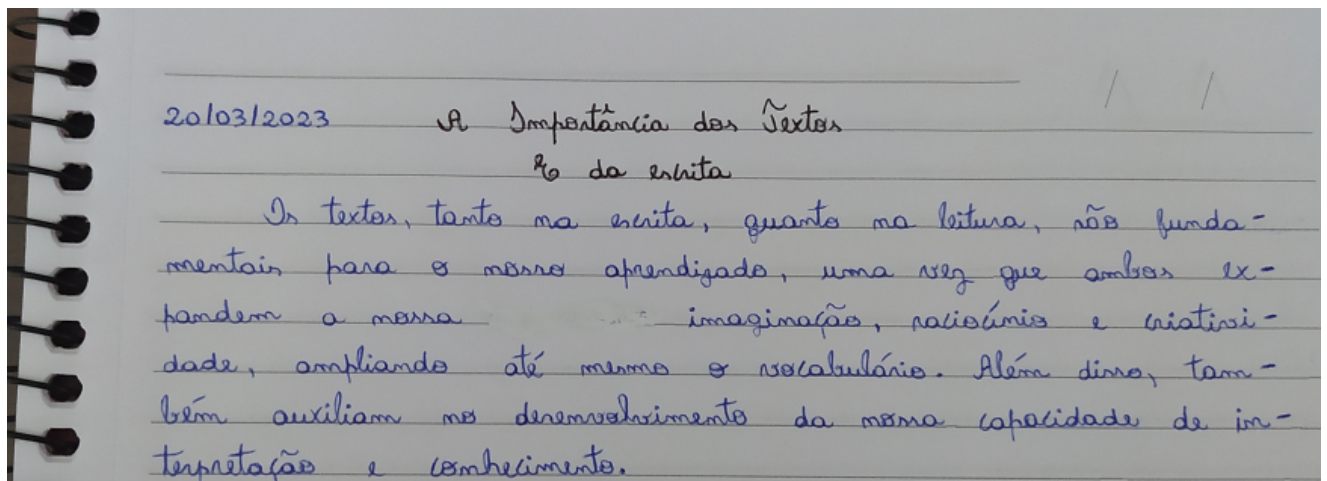 20/03/2023 A Importância dos Textos
e da escrita
Os textos, tanto na escrita, quanto na leitura, são funda-
mentais para o nosso aprendizado, uma vez que ambos ex-
pandem a nossa imaginação, raciocínio e criativi-
dade, ampliando até mesmo o vocabulário. Além disso, tam-
bém auxiliam no desenvolvimento da nossa capacidade de in-
terpretação e conhecimento.